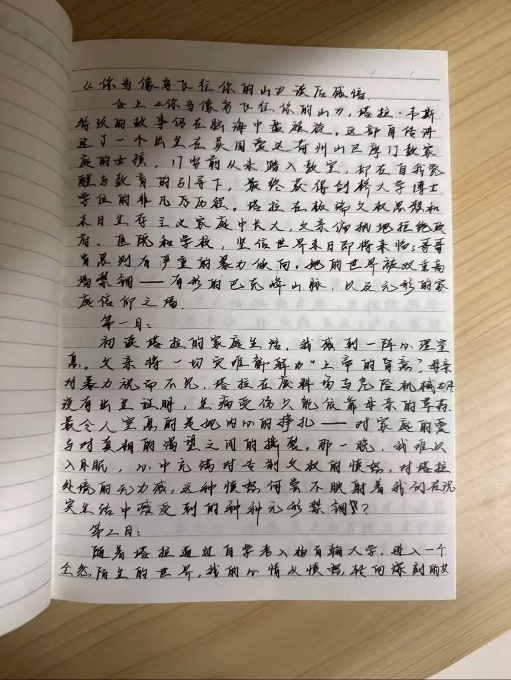 《你当像鸟飞往你的山》读后感悟
合上《你当像鸟飞往你的山》，塔拉·韦斯
特弗的故事仍在脑海中盘旋，这部自传讲
述了一个出生在美国爱达荷州山区摩门教家
庭的女孩，17岁前从未踏入教室，却在自我觉
醒与教育的引导下，最终获得剑桥大学博士
学位的非凡历程。塔拉在极端父权思想和
末日生存主义家庭中长大，父亲偏执地拒绝政
府、医院和学校，坚信世界末日即将来临；哥哥
肖恩则有严重的暴力倾向，她的世界被双重高
墙禁锢——有形的巴克峰山脉，以及无形的家
庭信仰之墙。
第一月：
初读塔拉的家庭生活，我感到一阵心理窒
息。父亲将一切灾难解释为"上帝的旨意"，母亲
对暴力视而不见，塔拉在废料场与危险机械
没有出生证明，生病受伤只能依靠母亲的草药
最令人窒息的是她内心的挣扎——对家庭的爱
与对真相的渴望之间的撕裂。那一晚，我难以
入眠，心中充满对专制父权的愤怒，对塔拉
处境的无力感。这种愤怒何尝不映射着我们在现
实生活中感受到的种种无形禁锢？
第二月：
随着塔拉通过自学考入杨百翰大学，进入一个
全然陌生的世界，我的心情从愤怒转向深刻的共